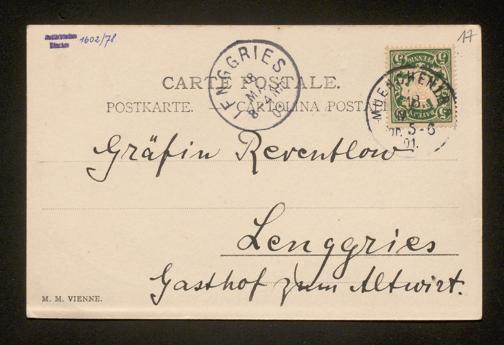 1602/78
17
CARTE POSTALE.
POSTKARTE. — CARTOLINA POSTALE
LENGGRIES
18
MAI
MUENCHEN
18
5-6
01.
BAYERN
PFENNIG
5
Gräfin Reventlow
Lenggries
Gasthof zum Altwirt.
M. M. VIENNE.